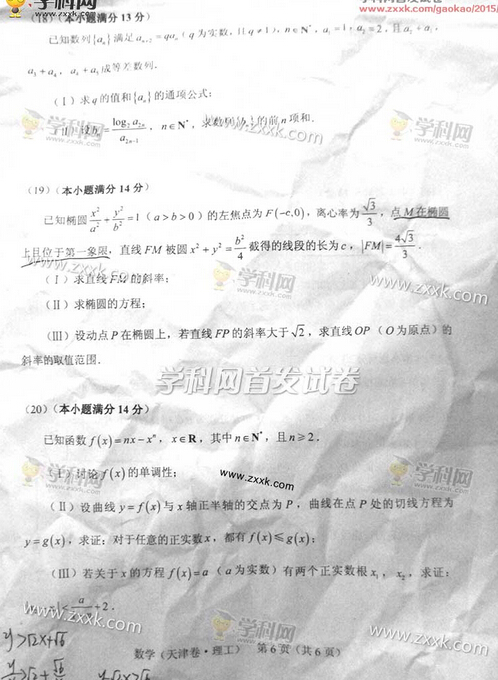 www.zxxk.com/gaokao/2015/
(18)(本小题满分 13 分)
已知数列{aₙ}满足 aₙ₊₂=qaₙ(q 为实数,且 q≠1),n∈N*,a₁=1,a₂=2,且 a₂+a₃,
a₃+a₄,a₄+a₅成等差数列.
(Ⅰ)求 q 的值和{aₙ}的通项公式;
(Ⅱ)设 bₙ=log₂a₂ₙ/a₂ₙ₋₁,n∈N*,求数列{bₙ}的前 n 项和.
学科网
www.zxxk.com
(19)(本小题满分 14 分)
已知椭圆 x²/a²+y²/b²=1(a>b>0)的左焦点为 F(-c,0),离心率为√3/3,点 M 在椭圆
上且位于第一象限,直线 FM 被圆 x²+y²=b²/4 截得的线段的长为 c,|FM|=4√3/3.
(Ⅰ)求直线 FM 的斜率;
(Ⅱ)求椭圆的方程;
(Ⅲ)设动点 P 在椭圆上,若直线 FP 的斜率大于√2,求直线 OP(O 为原点)的
斜率的取值范围.
学科网首发试卷
(20)(本小题满分 14 分)
已知函数 f(x)=nx-xⁿ,x∈R,其中 n∈N*,且 n≥2.
(Ⅰ)讨论 f(x)的单调性;
www.zxxk.com
(Ⅱ)设曲线 y=f(x)与 x 轴正半轴的交点为 P,曲线在点 P 处的切线方程为
y=g(x),求证:对于任意的正实数 x,都有 f(x)≤g(x);
(Ⅲ)若关于 x 的方程 f(x)=a(a 为实数)有两个正实数根 x₁,x₂,求证:
+2.
学科网
www.zxxk.com
数学(天津卷·理工) 第 6 页(共 6 页)
y>√2x+√6